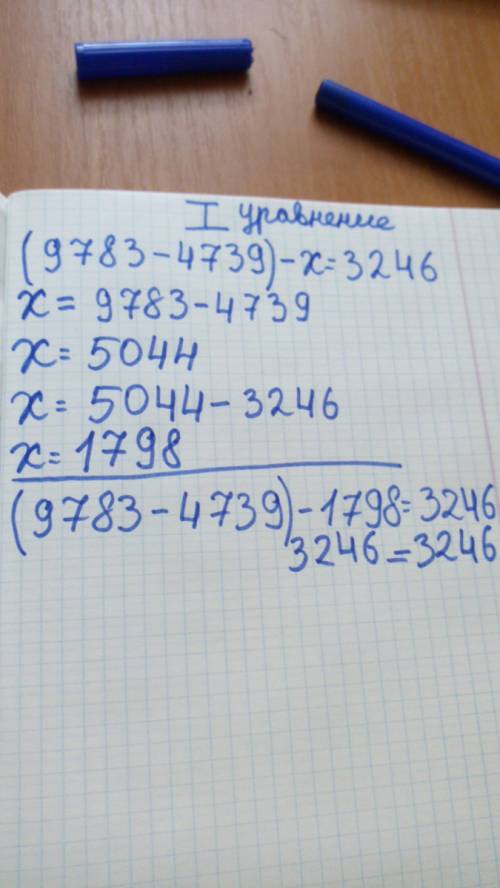 I уравнение
(9783-4739)-x=3246
x=9783-4739
x=5044
x=5044-3246
x=1798
(9783-4739)-1798=3246
3246=3246